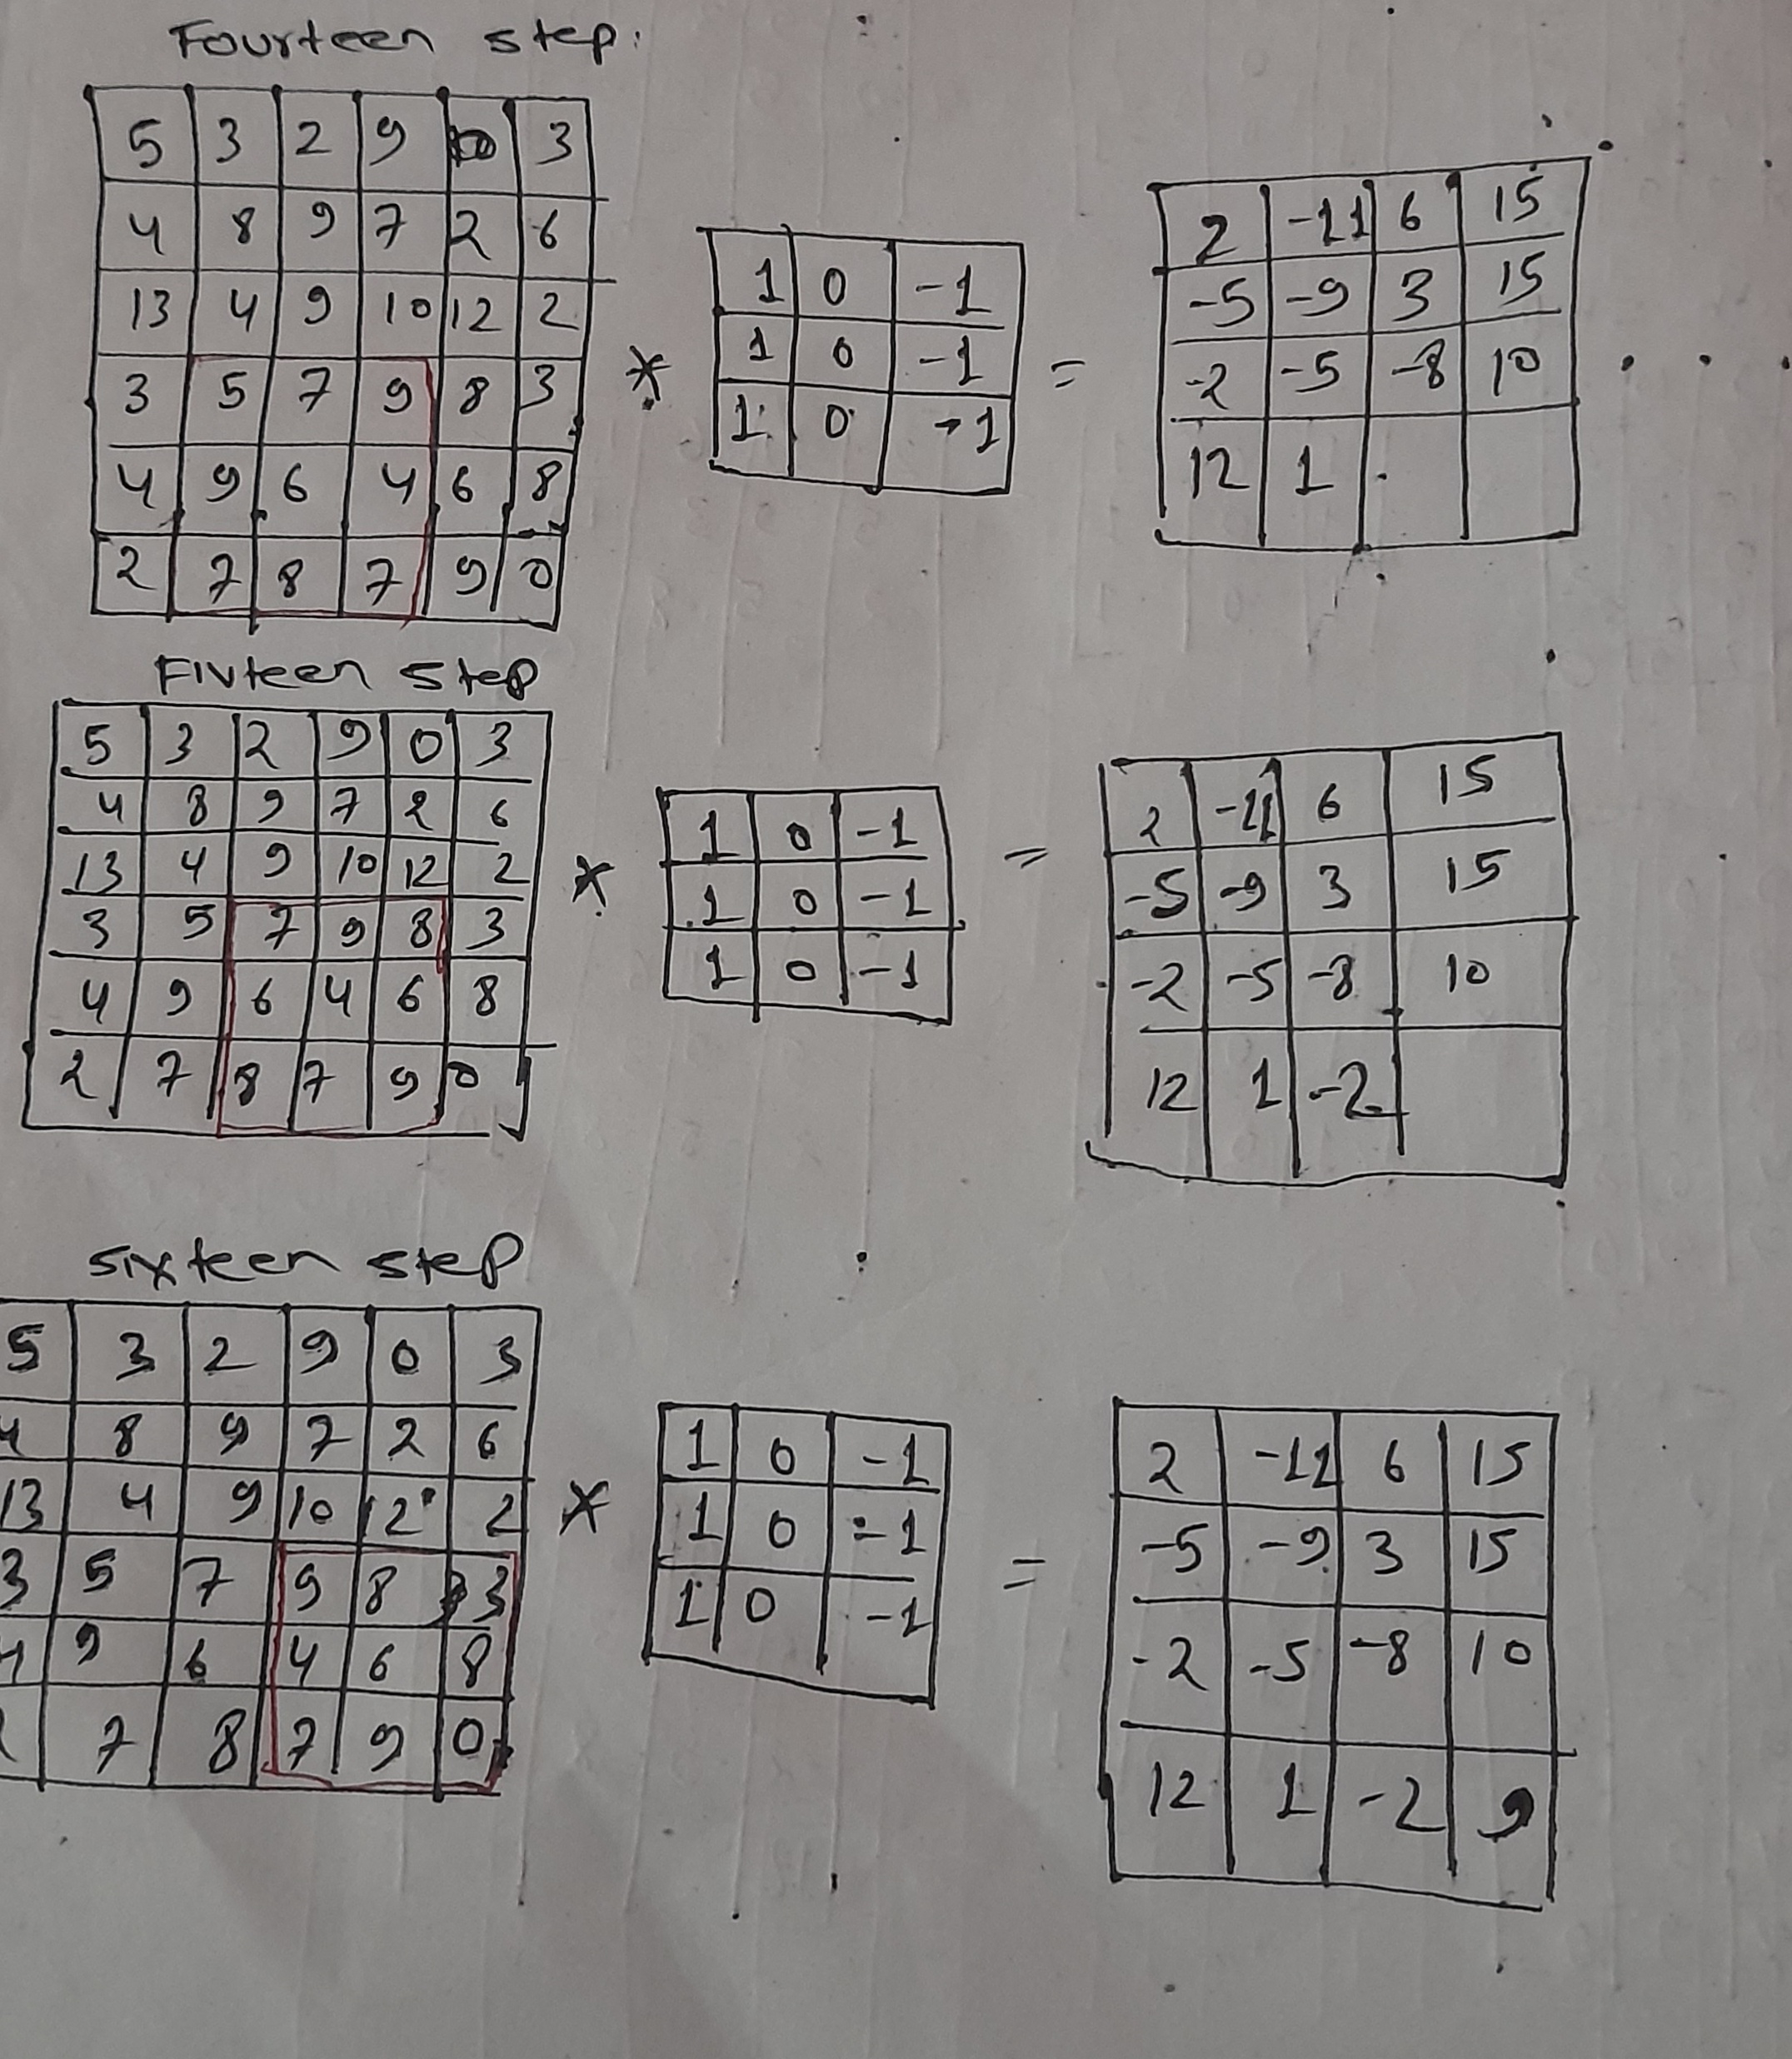 Fourteen step:
5 3 2 9 0 3
4 8 9 7 2 6
13 4 9 10 12 2
3 5 7 9 8 3
4 9 6 4 6 8
2 7 8 7 9 0
*
1 0 -1
1 0 -1
1 0 -1
=
2 -11 6 15
-5 -9 3 15
-2 -5 -8 10
12 1
Fivteen step
5 3 2 9 0 3
4 8 9 7 2 6
13 4 9 10 12 2
3 5 7 9 8 3
4 9 6 4 6 8
2 7 8 7 9 0
*
1 0 -1
1 0 -1
1 0 -1
=
2 -11 6 15
-5 -9 3 15
-2 -5 -8 10
12 1 -2
sixteen step
5 3 2 9 0 3
4 8 9 7 2 6
13 4 9 10 12 2
3 5 7 9 8 3
9 6 4 6 8
7 8 7 9 0
*
1 0 -1
1 0 -1
1 0 -1
=
2 -11 6 15
-5 -9 3 15
-2 -5 -8 10
12 1 -2 9